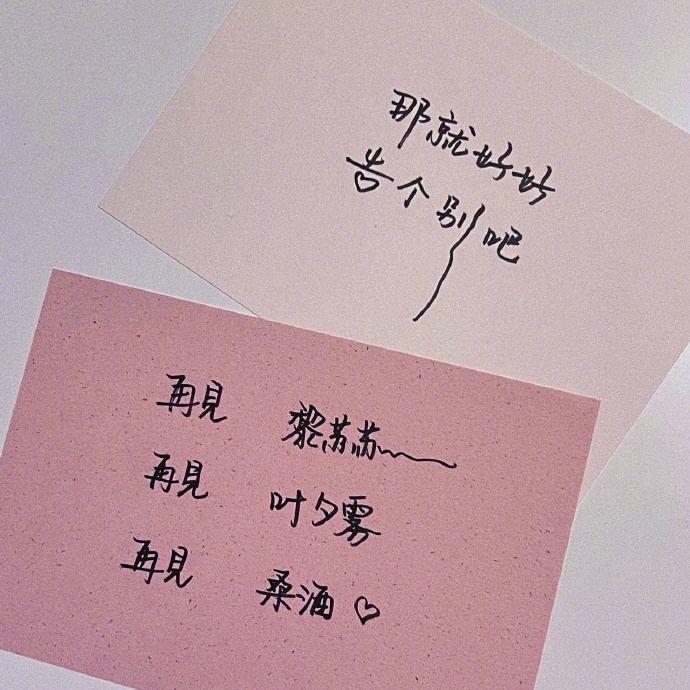 那就好好
告个别吧
再見 黎苏苏
再見 叶夕雾
再見 桑酒♡